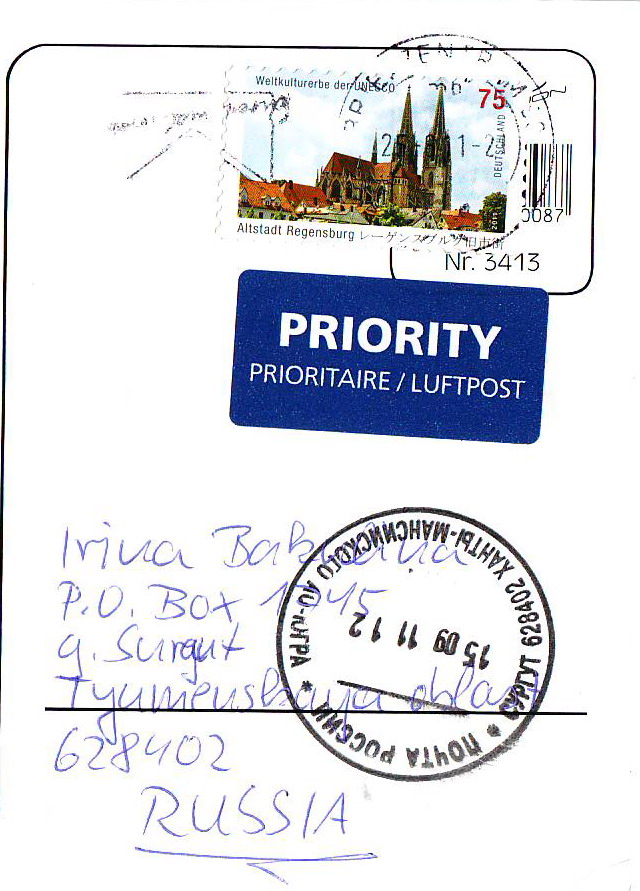 Weltkulturerbe der UNESCO
75
DEUTSCHLAND
2011
Altstadt Regensburg レーゲンスブルク旧市街
0087
Nr. 3413
PRIORITY
PRIORITAIRE / LUFTPOST
Irina
P.O. Box
g. Surgut
Tyumenskaya oblast
628402
RUSSIA
ПОЧТА РОССИИ * СУРГУТ 628402 ХАНТЫ-МАНСИЙСКОГО АО-ЮГРА *
15 09 11 12